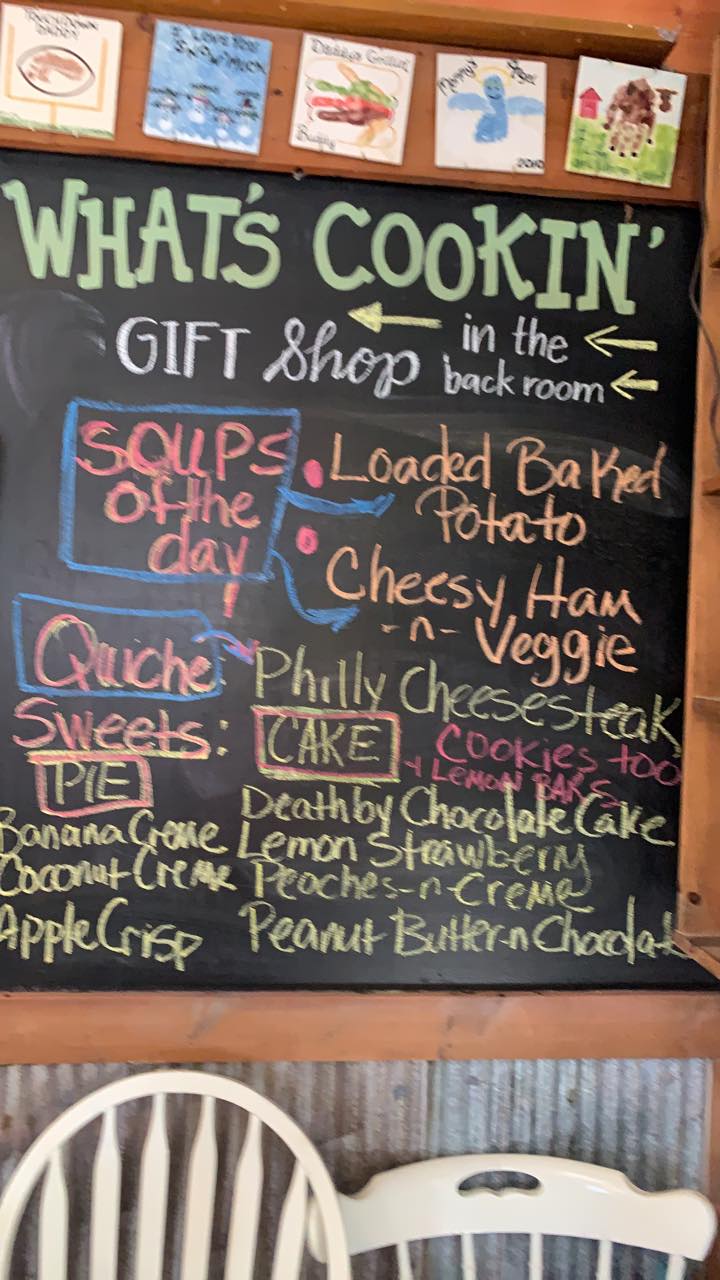 TOUCHDOWN DADDY
I LOVE YOU
SNOW MUCH
Daddy's Grillin'
Buddy
Mommy's Angel
2010
WHAT'S COOKIN'
GIFT Shop in the back room
SOUPS of the day!
Loaded Baked Potato
Cheesy Ham -n- Veggie
Quiche: Philly Cheesesteak
Sweets:
PIE
Banana Creme
Coconut Creme
Apple Crisp
CAKE
COOKIES too
+ LEMON BARS
Death by Chocolate Cake
Lemon Strawberry
Peaches-n-Creme
Peanut Butter-n Chocolat